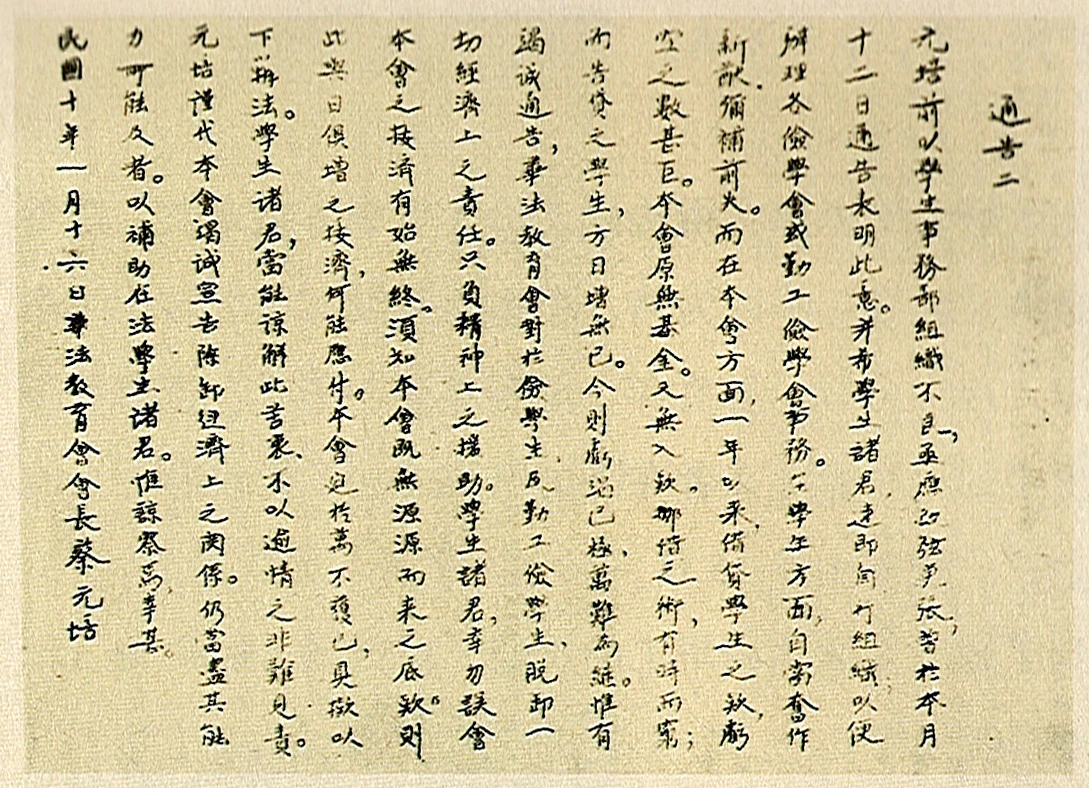 通告二
元培前以學生事務部組織不良，亟應改弦更張，曾於本月
十二日通告表明此意。并希學生諸君，速即自行組織，以便
辦理各儉學會或勤工儉學會事務。在學生方面，自當奮作
新猷，彌補前失。而在本會方面，一年以來，借貸學生之款，虧
空之數甚巨。本會原無基金。又無入款。挪借之術，有時而窮；
而告貸之學生，方日增無已。今則虧竭已極，萬難為繼。惟有
竭誠通告，華法教育會對於儉學生及勤工儉學生，脫卸一
切經濟上之責任。只負精神上之援助。學生諸君，幸勿誤會
本會之接濟有始無終。須知本會既無源源而來之底款。則
此與日俱增之接濟，何能應付。本會迫於萬不獲已，具徵以
下辦法。學生諸君，當能諒解此苦衷、不以逾情之非難見責。
元培謹代本會竭誠宣告除卸經濟上之関係。仍當盡其能
力所能及者。以補助在法學生諸君。惟諒察焉，幸甚。
民國十年一月十六日華法教育會會長蔡元培